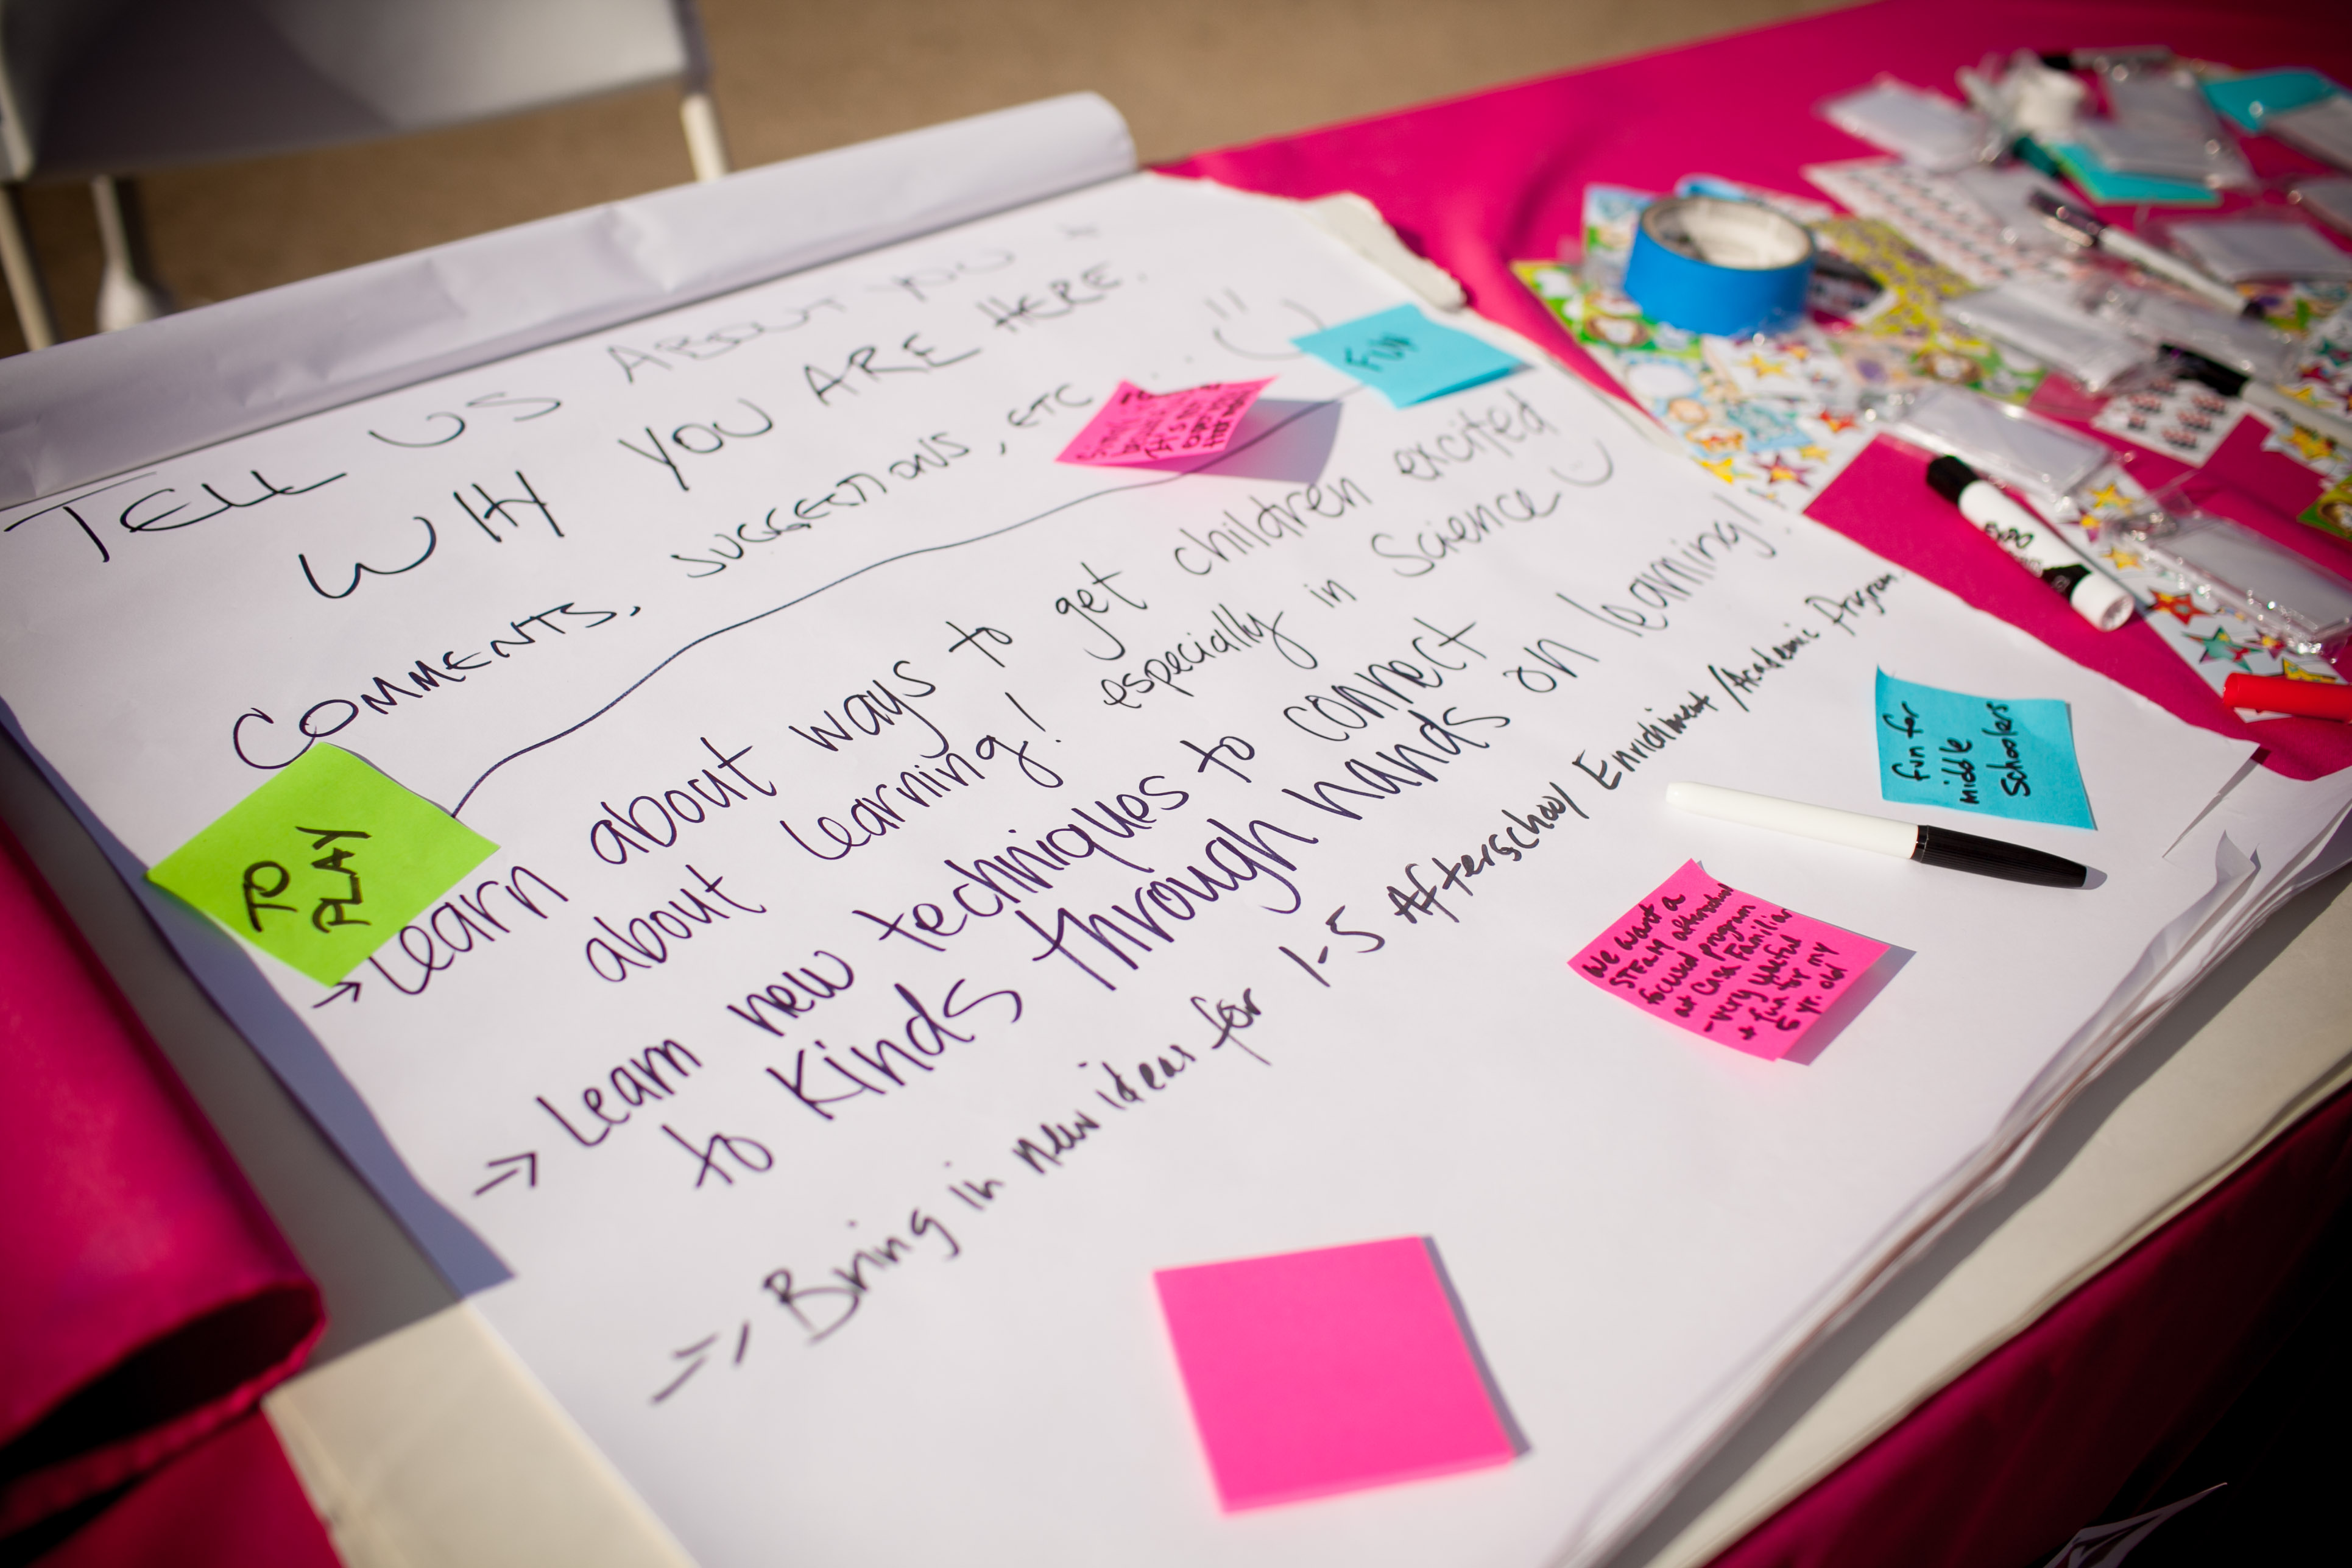 TELL US ABOUT YOU +
WHY YOU ARE HERE.
COMMENTS, SUGGESTIONS, ETC
FUN
TO
PLAY
Learn about ways to get children excited
about learning! especially in Science
Learn new techniques to connect
to Kinds through hands on learning!
Bring in new ideas for 1-5 Afterschool Enrichment/Academic Program.
fun for
middle
Schoolers
We want a
STEAM afterschool
focused program
at Casa Familiar
-very useful
+ fun for my
5 yr. old
EXPO